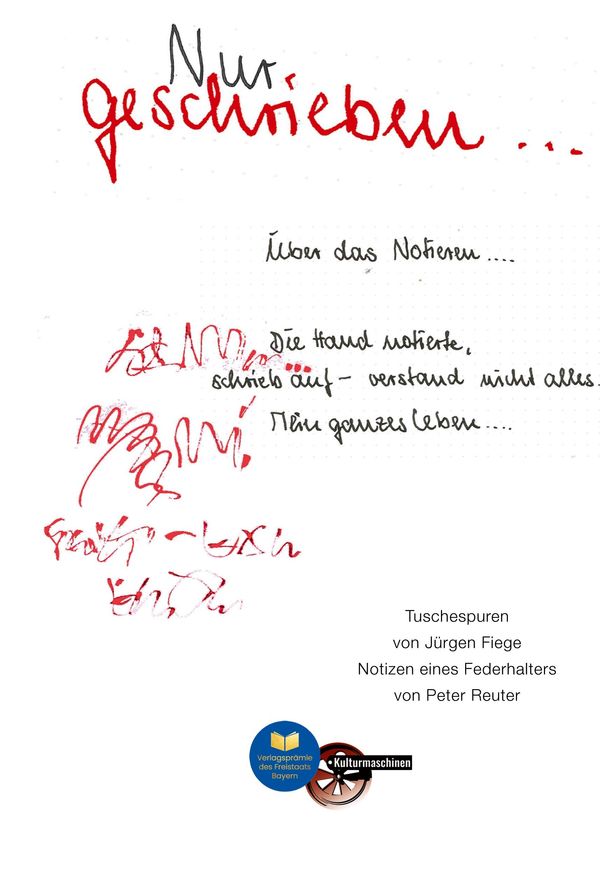 Nur
geschrieben ...
Über das Notieren ....
Die Hand notierte,
schrieb auf – verstand nicht alles.
Mein ganzes Leben ....
Tuschespuren
von Jürgen Fiege
Notizen eines Federhalters
von Peter Reuter
Verlagsprämie
des Freistaats
Bayern
Kulturmaschinen